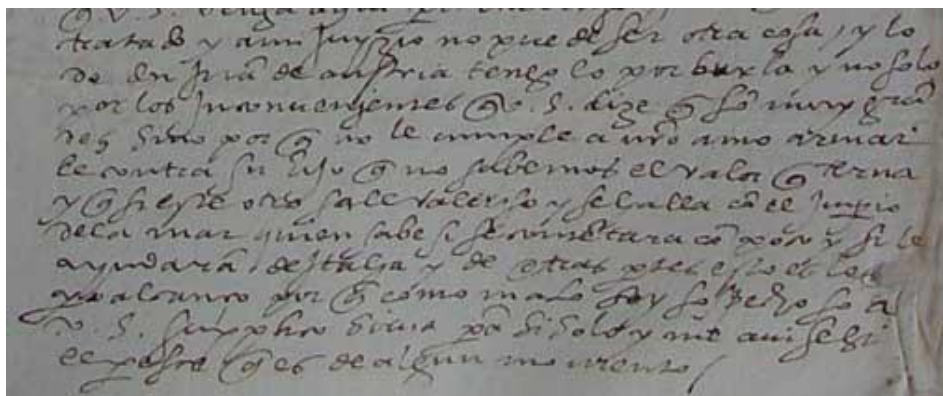 q̃ V. S.
tratado y a mi Juyzio no puede ser otra cosa, y lo
de don Juã de austria tengo lo por burla y no solo
por los Inconuenientes q̃ v. s. dize q̃ sõ muy grã
des sino por q̃ no le cumple a nr̃o amo armar
le contra su hijo q̃ no sabemos el valor q̃ terna
y q̃ si este otro sale valeroso y se halla cõ el Imperio
dela mar quien sabe si se contẽtara cõ poco y si le
ayudarã de Italia y de otras ptes esto es lo q̃
yo alcanço por q̃ como malo soy sospechoso a
v. s. suppco sirua pa si solo y me auise si
el q̃ es de algun momento